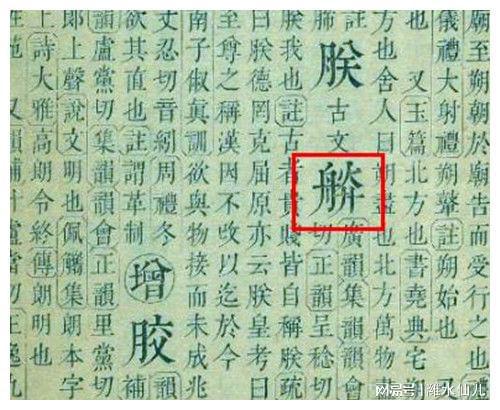 廟至朔朝於廟告而受行之也
儀禮大射禮朔鼙註朔始也
也 又玉篇北方也書堯典宅
方也舍人曰朔盡也北方萬物
註
朕 古文 𦩎 廣韻集韻韻會
切正韻呈稔切
朕我也註古者貴賤皆自稱朕疏
曰朕德罔克屈原亦云朕皇考曰
至尊之稱漢因不改以迄於今
南子俶真訓欲與物接而未成兆
丈忍切音紖周禮冬
欲其直也註謂革制
增 胶 補
韻盧黨切集韻韻會正韻里黨切
郎上聲說文明也佩觿集朗本字
上詩大雅高朗令終傳朗明也
又韻補叶盧當切王逸九
网易号 | 維水仙儿